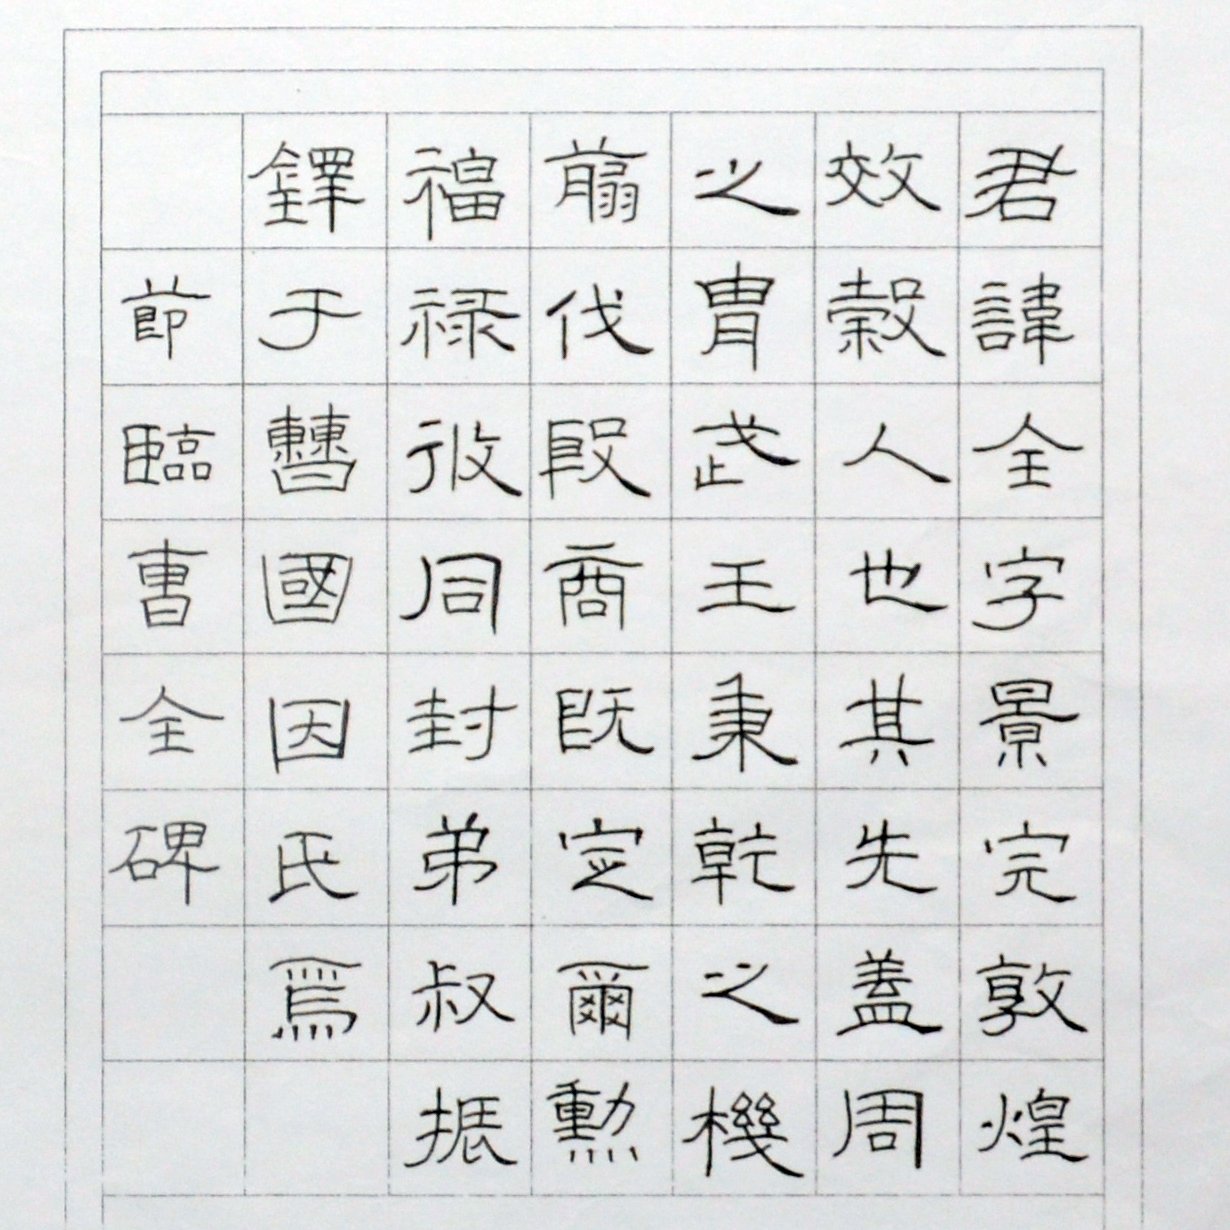 君諱全字景完敦煌
效穀人也其先蓋周
之胄武王秉乾之機
翦伐殷商既定爾勲
福禄攸同封弟叔振
鐸于曹國因氏焉
節臨曹全碑